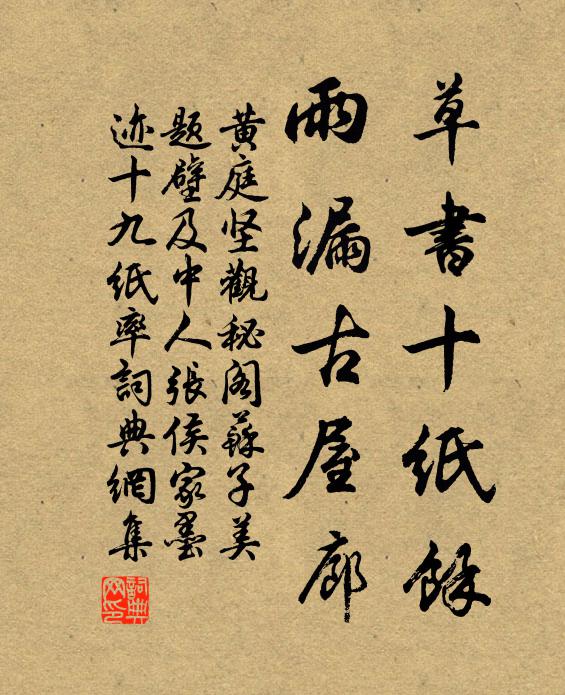 草書十紙餘
雨漏古屋廊
黄庭坚觀秘阁蘇子美
题壁及中人張侯家墨
迹十九紙率詞典網集